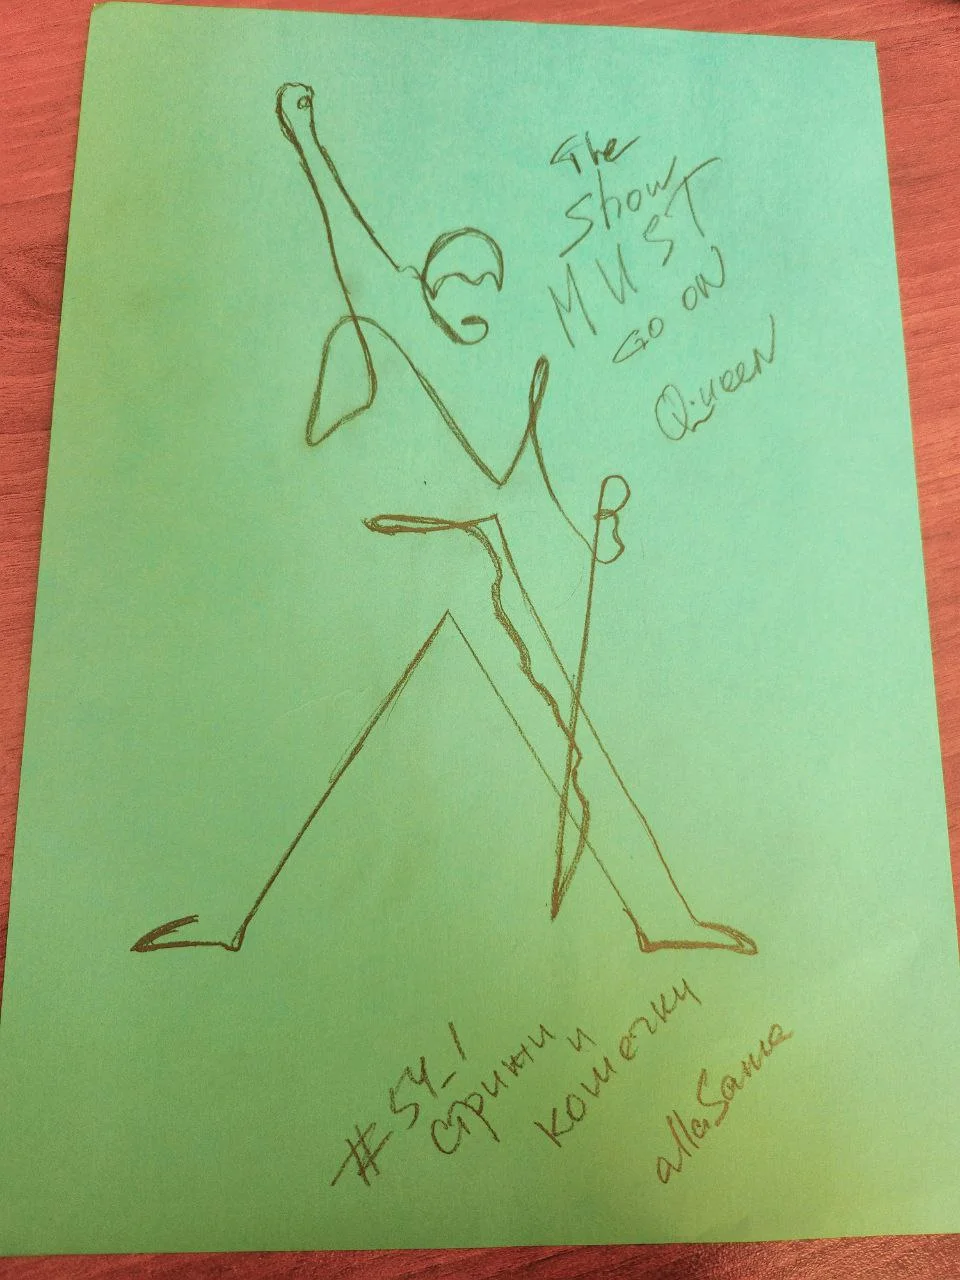 The
Show
MUST
GO ON
Queen
#54_1
Стрижи
и
кошечки
allaSanna